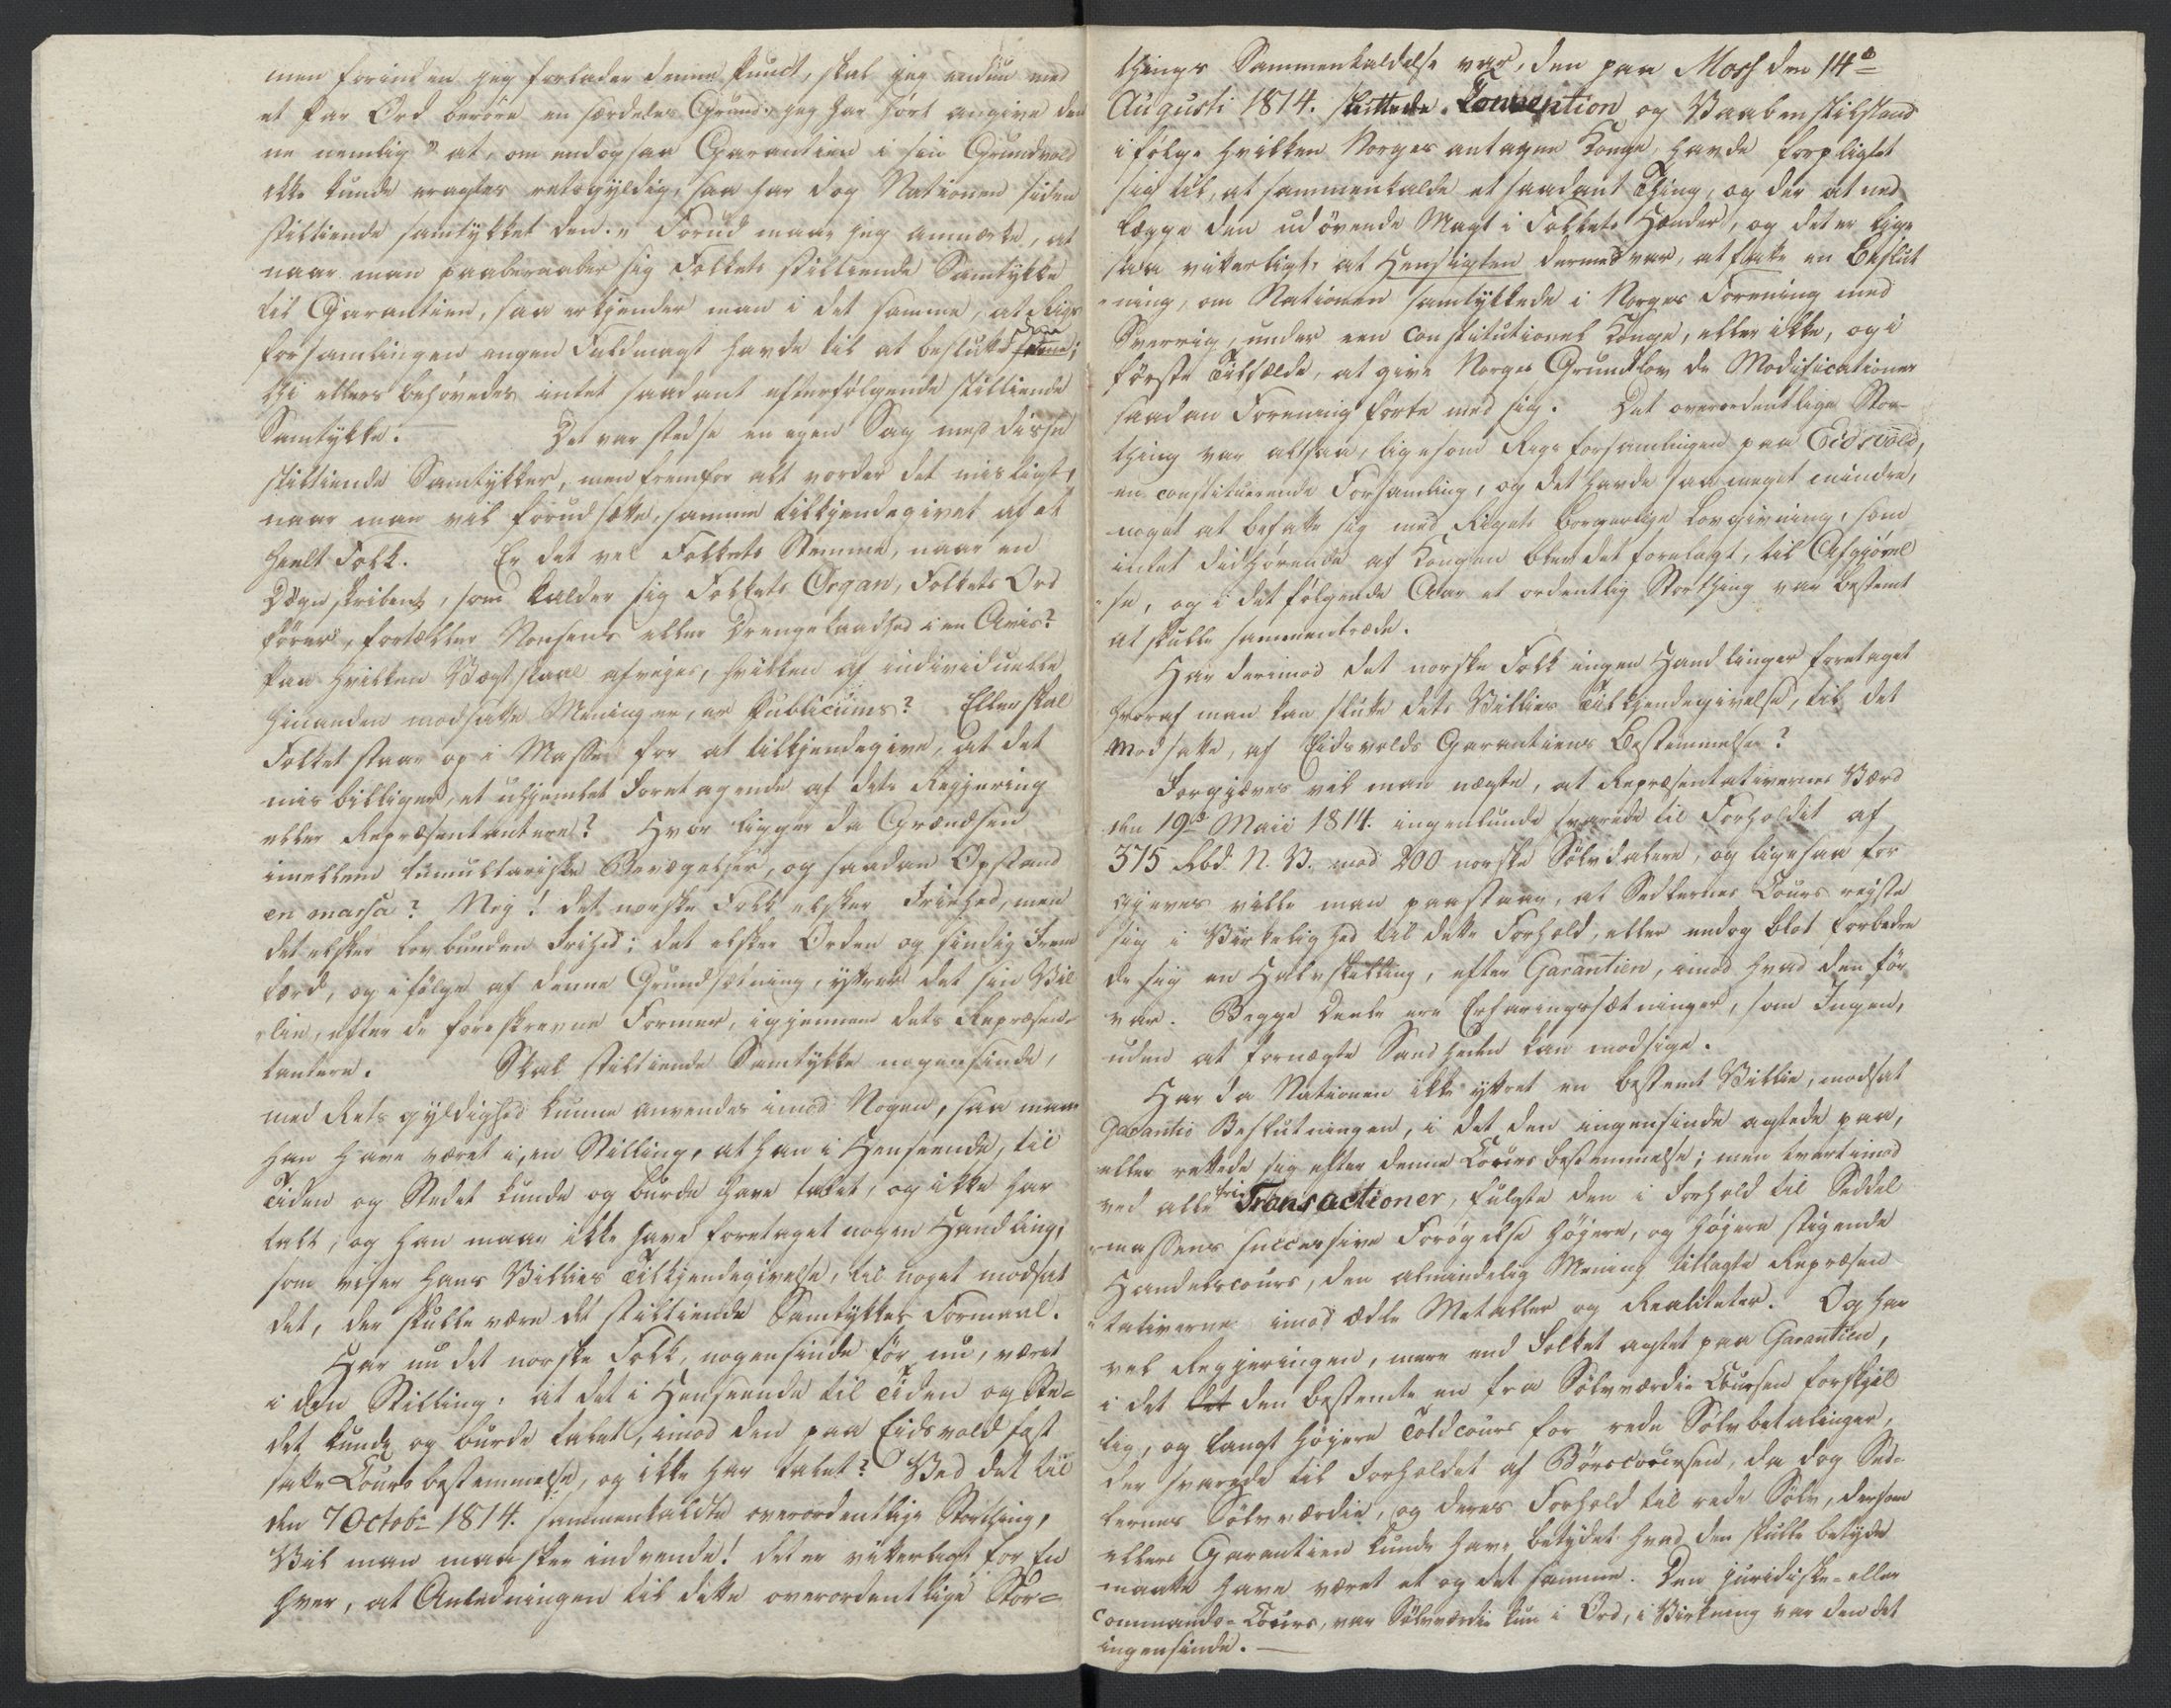 men forinden jeg forlader denne Punct, skal jeg endnu med
et Par Ord berøre en særdeles Grund, jeg har hørt angive den
ne nemlig "at, om endogsaa Garantien i sin Grundvold
ikke kunde eragtes retsgyldig, saa har dog Nationen siden
stiltiende samtykket den." Forud maae jeg anmærke, at
naar man paaberaaber sig Folkets stiltiende Samtykke
til Garantien, saa erkjender man i det samme, at Rigs
forsamlingen ingen Fuldmagt havde til at beslutte
thi ellers behøvedes intet saadant efterfølgende stiltiende
Samtykke. Det var stedse en egen Sag med disse
stiltiende Samtykker, men fremfor alt vorder det misligt,
naar man vil forudsætte, samme tilkjendegivet af et
heelt Folk. Er det vel Folkets Stemme, naar en
Døgnskribent, som kalder sig Folkets Organ, Folkets Ord
fører, fortæller Nonsens eller Drengekaadhed i en Avis?
Paa hvilken Vægtskaal afveies, hvilken af individuelle
hinanden modsatte Meninger, er Publicums? Eller skal
Folket staae op i Masse for at tilkjendegive, at det
misbilliger, et uhjemlet Foretagende af dets Regjering
eller Repræsentantere? Hvor ligger da Grændsen
imellem tumultariske Bevægelser, og saadan Opstand
en massa? Nej! det norske Folk elsker Friehed, men
det elsker lovbunden Frihed; det elsker Orden og sindig Frem
færd, og ifølge af denne Grundsætning, yttrer det sin Vil
lie, efter de foreskrevne Former, igjennem dets Repræsen-
tantere. Skal stiltiende Samtykke nogensinde,
med Rets gyldighed kunne anvendes imod Nogen, saa maae
han have været i, en Stilling, at han i Henseende, til
Tiden og Stedet kunde og burde have talet, og ikke har
talt, og han maae ikke have foretaget nogen Handling,
som viser hans Villies Tilkjendegivelse, til noget modsat
det, der skulle være det stiltiende Samtykkes Formaal.
Har nu det norske Folk, nogensinde før nu, været
i den Stilling, at det i Henseende til Tiden og Ste-
det kunde og burde talet, imod den paa Eidsvold fast
satte Coursbestemmelse, og ikke har talet? Ved det til
den 7 Octobr 1814. sammenkaldte overordentlige Storthing,
Vil man maaskee indvende! det er vitterligt for En
hver, at Anledningen til dette overordentlige Stor-
things Sammenkaldelse var, den paa Moss den 14de
Augusti 1814. sluttede Convention og Vaabenstilstand
ifølge hvilken Norges antagne Konge, havde forpligtet
sig til, at sammenkalde et saadant Thing, og der at ned
lægge den udøvende Magt i Folkets Hænder, og det er lige
saa vitterligt, at Hensigten dermed var, at fatte en Beslut
ning, om Nationen samtykkede i Norges Forening med
Sverrig, under een constitutionel Konge, eller ikke, og i
første Tilfælde, at give Norges Grundlov de Modificationer
saadan Forening førte med sig. Det overordentlige Stor-
thing var altsaa, ligesom Rigsforsamlingen paa Eidsvold,
en constituerende Forsamling, og det havde saa meget mindre,
noget at befatte sig med Rigets borgerlige Lovgivning, som
intet didhørende af Kongen blev det forelagt, til Afgjørel
se, og i det følgende Aar et ordentlig Storthing var bestemt
at skulle sammentræde.
Har derimod det norske Folk ingen Handlinger foretaget
hvoraf man kan slutte dets Villies Tilkjendegivelse, til det
modsatte, af Eidsvolds Garantiens Bestemmelse?
Forgjæves vil man nægte, at Repræsentativernes Værd
den 19de Maii 1814. ingenlunde svarede til Forholdet af
375 Rbd. N. V. mod 200 norske Sølvdalere, og ligesaa for
gjæves ville man paastaae, at Sedlernes Cours reiste
sig i Virkelighed til dette Forhold, eller endog blot forbedre
de sig en Halvskilling, efter Garantien, imod hvad den før
var. Begge Deele ere Erfaringssætninger, som Ingen,
uden at fornægte Sandheden kan modsige.
Har da Nationen ikke yttret en bestemt Villie, modsat
Garantie Beslutningen, i det den ingensinde agtede paa,
eller rettede sig efter denne Cours bestemmelse; men tvertimod
ved alle frie Transactioner, fulgte den i Forhold til Seddel
massens successive Forøgelse høiere, og høiere stigende
Handelscours, den almindelig Mening tillagte Repræsen
tativerne imod ædle Metaller og Realiteter. Og har
vel Regjeringen, mere end Folket agtet paa Garantien,
i det det den bestemte en fra Sølvværdie Coursen forskjel
lig, og langt høiere Toldcours for rede Sølvbetalinger,
der svarede til Forholdet af Børscoursen, da dog Sed-
lernes Sølvværdie, og deres Forhold til rede Sølv, dersom
ellers Garantien kunde have betydet hvad den skulle betyde
maatte have været et og det samme. Den juridiske- eller
commando-Cours, var Sølvværdie kun i Ord, i Virkning var den det
ingensinde.